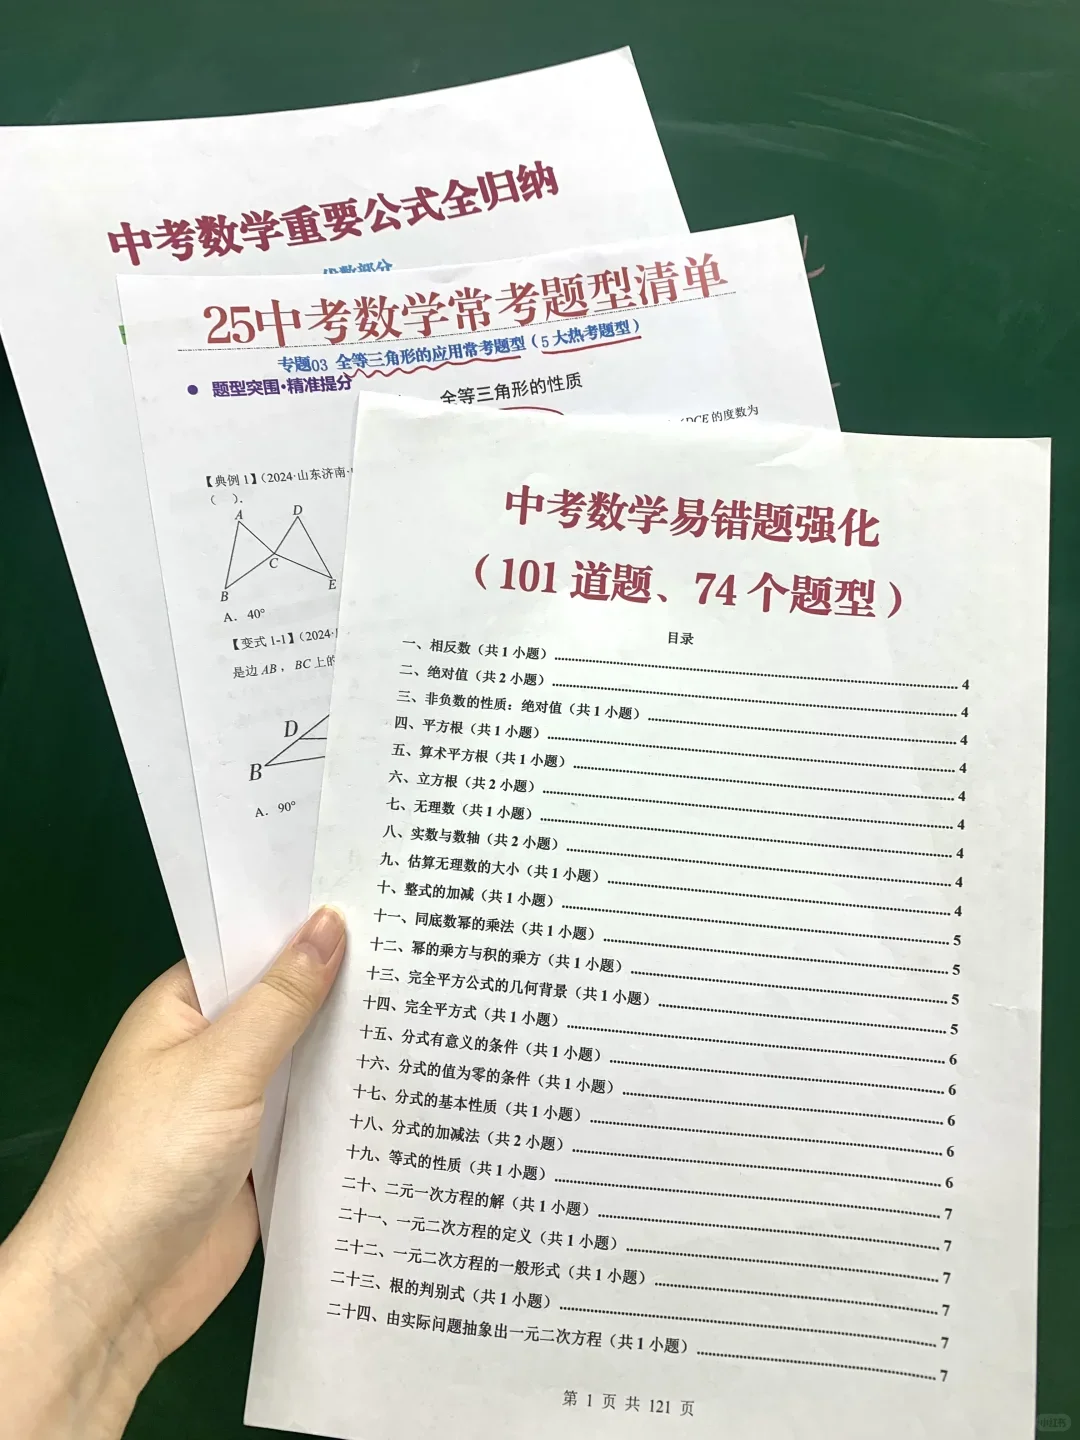 中考数学重要公式全归纳
代数部分
25中考数学常考题型清单
专题03 全等三角形的应用常考题型（5大热考题型）
● 题型突围·精准提分
全等三角形的性质
DCE的度数为
【典例1】（2024·山东济南·
（　）.
A
D
C
B
E
A. 40°
【变式1-1】（2024·
是边AB，BC上的
D
B
A. 90°
中考数学易错题强化
（101道题、74个题型）
目录
一、相反数（共1小题）4
二、绝对值（共2小题）4
三、非负数的性质：绝对值（共1小题）4
四、平方根（共1小题）4
五、算术平方根（共1小题）4
六、立方根（共2小题）4
七、无理数（共1小题）4
八、实数与数轴（共2小题）4
九、估算无理数的大小（共1小题）4
十、整式的加减（共1小题）5
十一、同底数幂的乘法（共1小题）5
十二、幂的乘方与积的乘方（共1小题）5
十三、完全平方公式的几何背景（共1小题）5
十四、完全平方式（共1小题）6
十五、分式有意义的条件（共1小题）6
十六、分式的值为零的条件（共1小题）6
十七、分式的基本性质（共1小题）6
十八、分式的加减法（共2小题）6
十九、等式的性质（共1小题）7
二十、二元一次方程的解（共1小题）7
二十一、一元二次方程的定义（共1小题）7
二十二、一元二次方程的一般形式（共1小题）7
二十三、根的判别式（共1小题）7
二十四、由实际问题抽象出一元二次方程（共1小题）7
第 1 页 共 121 页
小红书